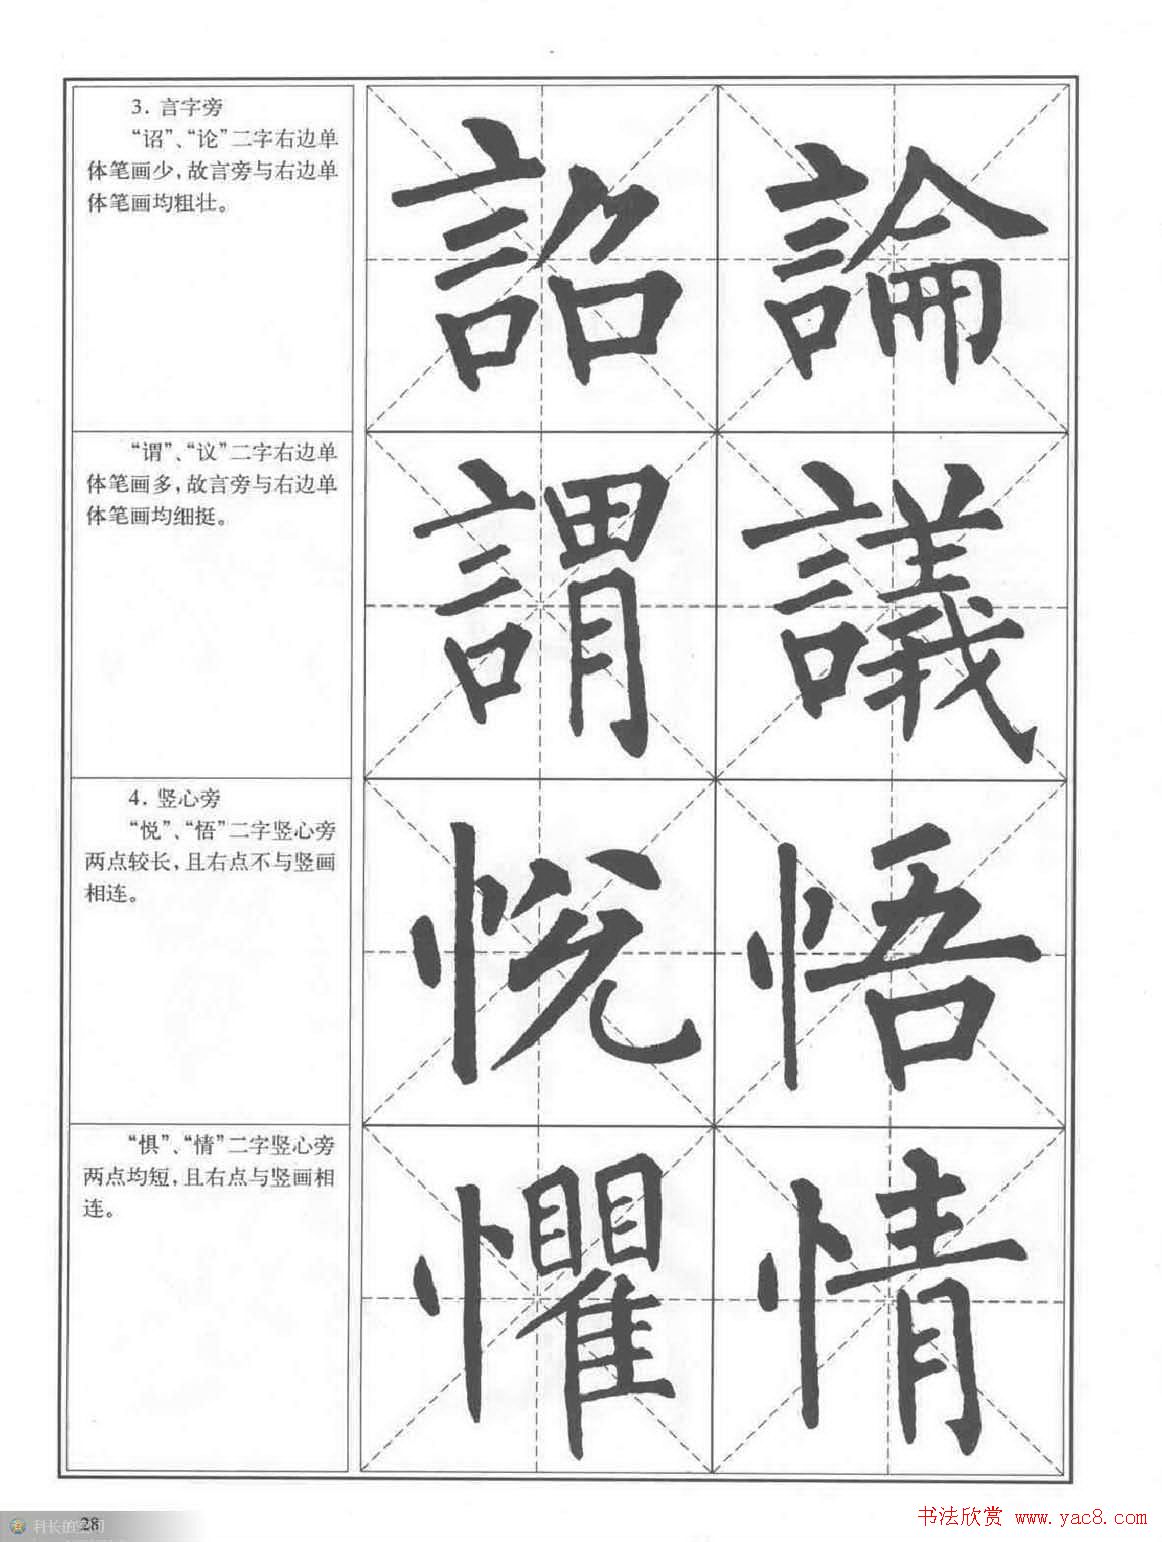 3. 言字旁
“诏”、“论”二字右边单
体笔画少,故言旁与右边单
体笔画均粗壮。
詔 論
“谓”、“议”二字右边单
体笔画多,故言旁与右边单
体笔画均细挺。
謂 議
4. 竖心旁
“悦”、“悟”二字竖心旁
两点较长,且右点不与竖画
相连。
悦 悟
“惧”、“情”二字竖心旁
两点均短,且右点与竖画相
连。
懼 情
28
科长的空间
书法欣赏 www.yac8.com